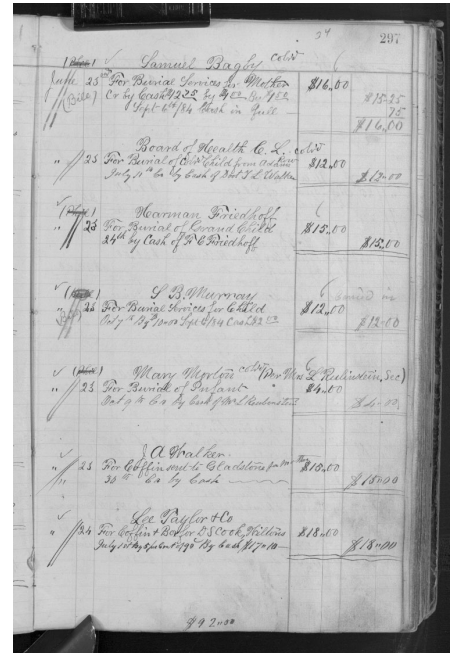 297
Samuel Bagby cold
June 25 For Burial Services for Mother $16.00
(Bill) Cr by Cash $12 25 by $15.25
Sept 6th/84 Cash in full 75
$16.00
Board of Health C. L. cold
" 25 For Burial of Child from $12.00
July 11th Cr by Cash of T L Walker $12.00
Harman Friedhoff
" 25 For Burial of Grand Child $15.00
24th by Cash of F C Friedhoff $15.00
S B Murray
" 26 For Burial Services for Child $12.00
Oct 7th Sept 6/84 Cash $2 00 $12.00
Mary Morton cold (Per Mrs L Rubinstein, Sec)
" 23 For Burial of Infant $4.00
Oct 9th Cr by Cash of Mrs L Rubinstein $4.00
J A Walker
" 23 For Coffin send to Gladstone $15.00
30th Cr by Cash $15.00
Lee Taylor & Co
" 24 For Coffin & Box for D S Cook, $18.00
July 1st By 5 90 By Cash $17.10 $18.00
$92.00